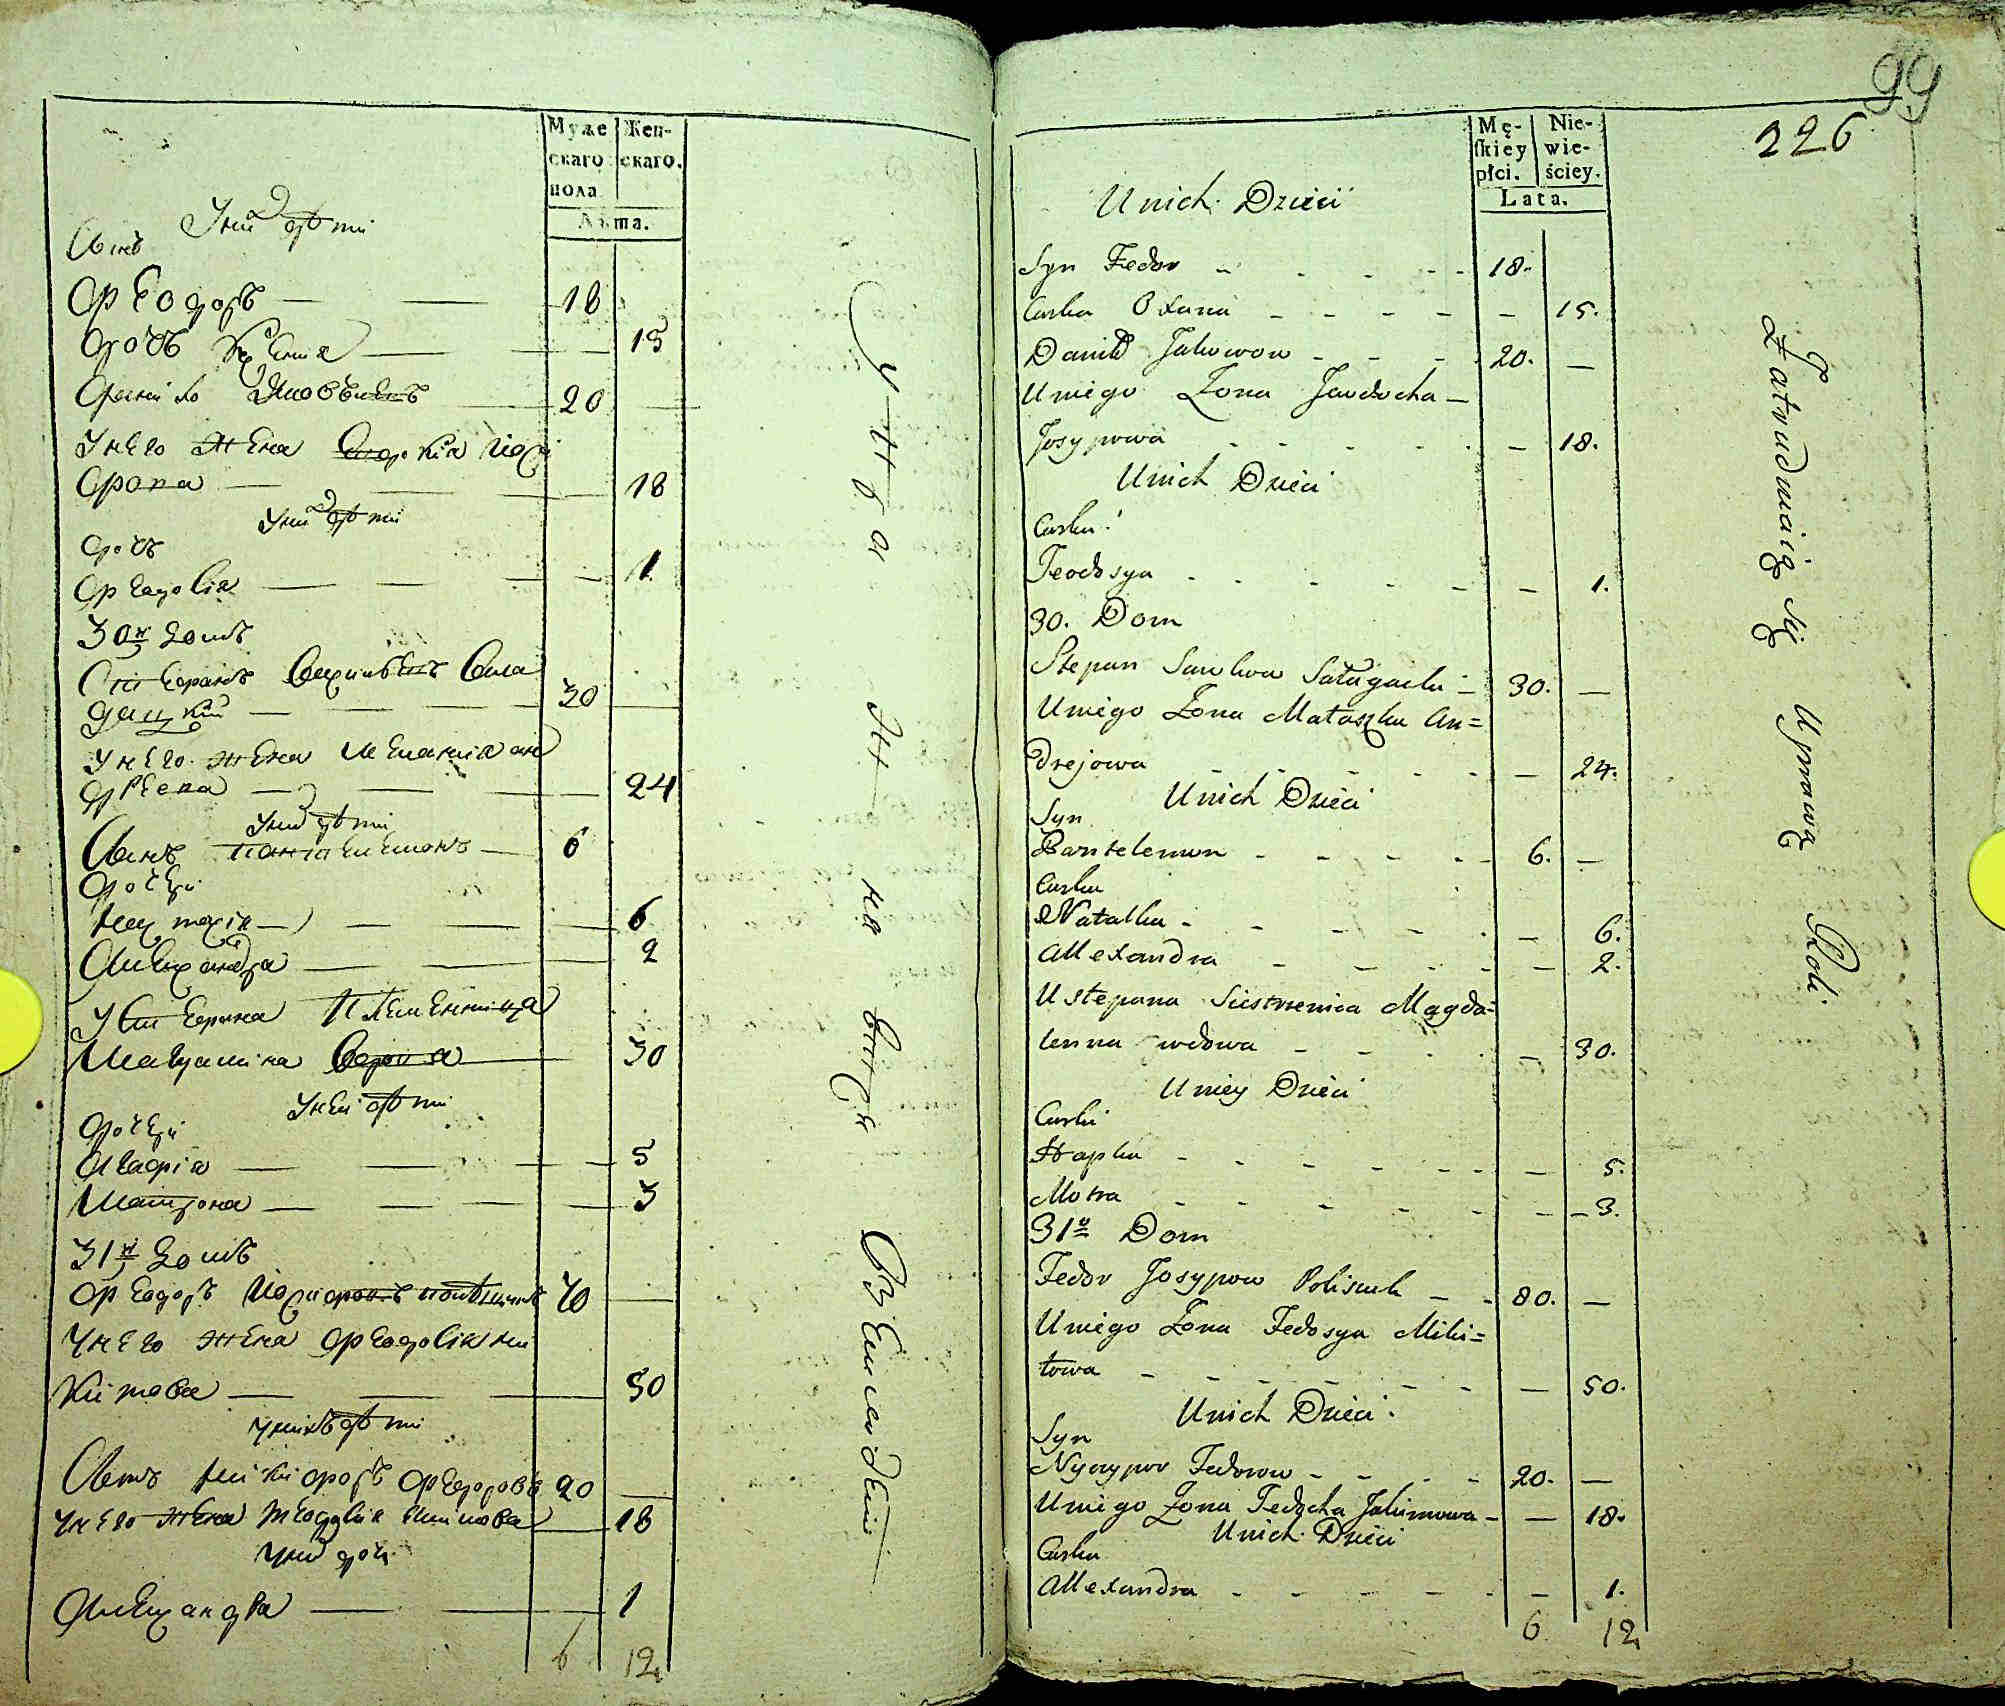 Муже
скаго
пола
Жен-
скаго.
Лѣта.
У ни дѣти
Сынъ
Феодоръ 18
дочь Ксенія 15
Данило Яковъвъ 20
У него жена Евдокія Іосі
фова 18
У ни дѣти
дочь
Феодосія 1.
30й домъ
Стефанъ Савинъ Сала
гацкій 30
У него жена Меланія Ан
дрѣева 24
У ни дѣти
Сынъ Пантелемонъ 6
дочери
Настасія 6
Александра 2
У Стефана племенница
Магдалина вдова 30
У неи дѣти
дочери
Агафія 5
Матрона 3
31й домъ
Феодоръ Іосифовъ 70
У него жена Феодосія Ни
китова 50
У нихъ дѣти
Сынъ Никифоръ Федоровъ 20
У него жена Феодосія 18
У ни дочь
Александра 1
6 12
У нива жи на вит Землидѣлі
99
226
Mę-
skiey
płci.
Nie-
wie-
ściey.
Lata.
Unich Dzieci
Syn Fedor 18.
Curka Oxana 15.
Daniło Jakowow 20.
Uniego Zona Jewdocha
Josypowa 18.
Unich Dzieci
Curka
Teodosya 1.
30. Dom
Stepan Sawkow Sałagacki 30.
Uniego Zona Małaszka An=
drejowa 24.
Unich Dzieci
Syn
Pantelemon 6.
Curka
Natalka 6.
Allexandra 2.
U Stepana Siestrzenica Magda=
lenna wdowa 30.
Uniey Dzieci
Curki
Hapka 5.
Motra 3.
31y Dom
Fedor Josypow Poliszuk 80.
Uniego Zona Fedosya Miki=
towa 50.
Unich Dzieci
Syn
Nyczypor Fedorow 20.
Uniego Zona Fedocha Jakimowa 18.
Unich Dzieci
Curka
Allexandra 1.
6 12
Zatrudniaią Się Uprawą Roli.